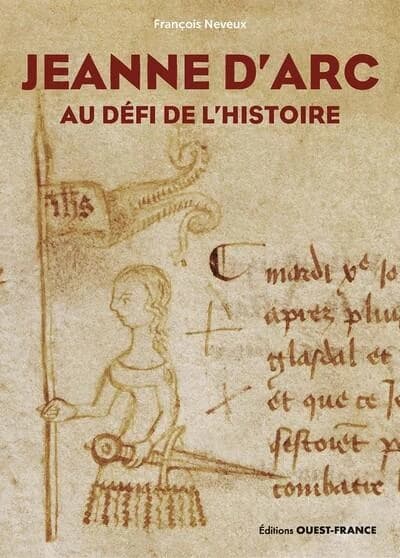 François Neveux
JEANNE D'ARC
AU DÉFI DE L'HISTOIRE
ihs
mardi xe jo
aprez plui
glasdal et
et que ce Je
sestoiet p
combatre
Éditions OUEST-FRANCE